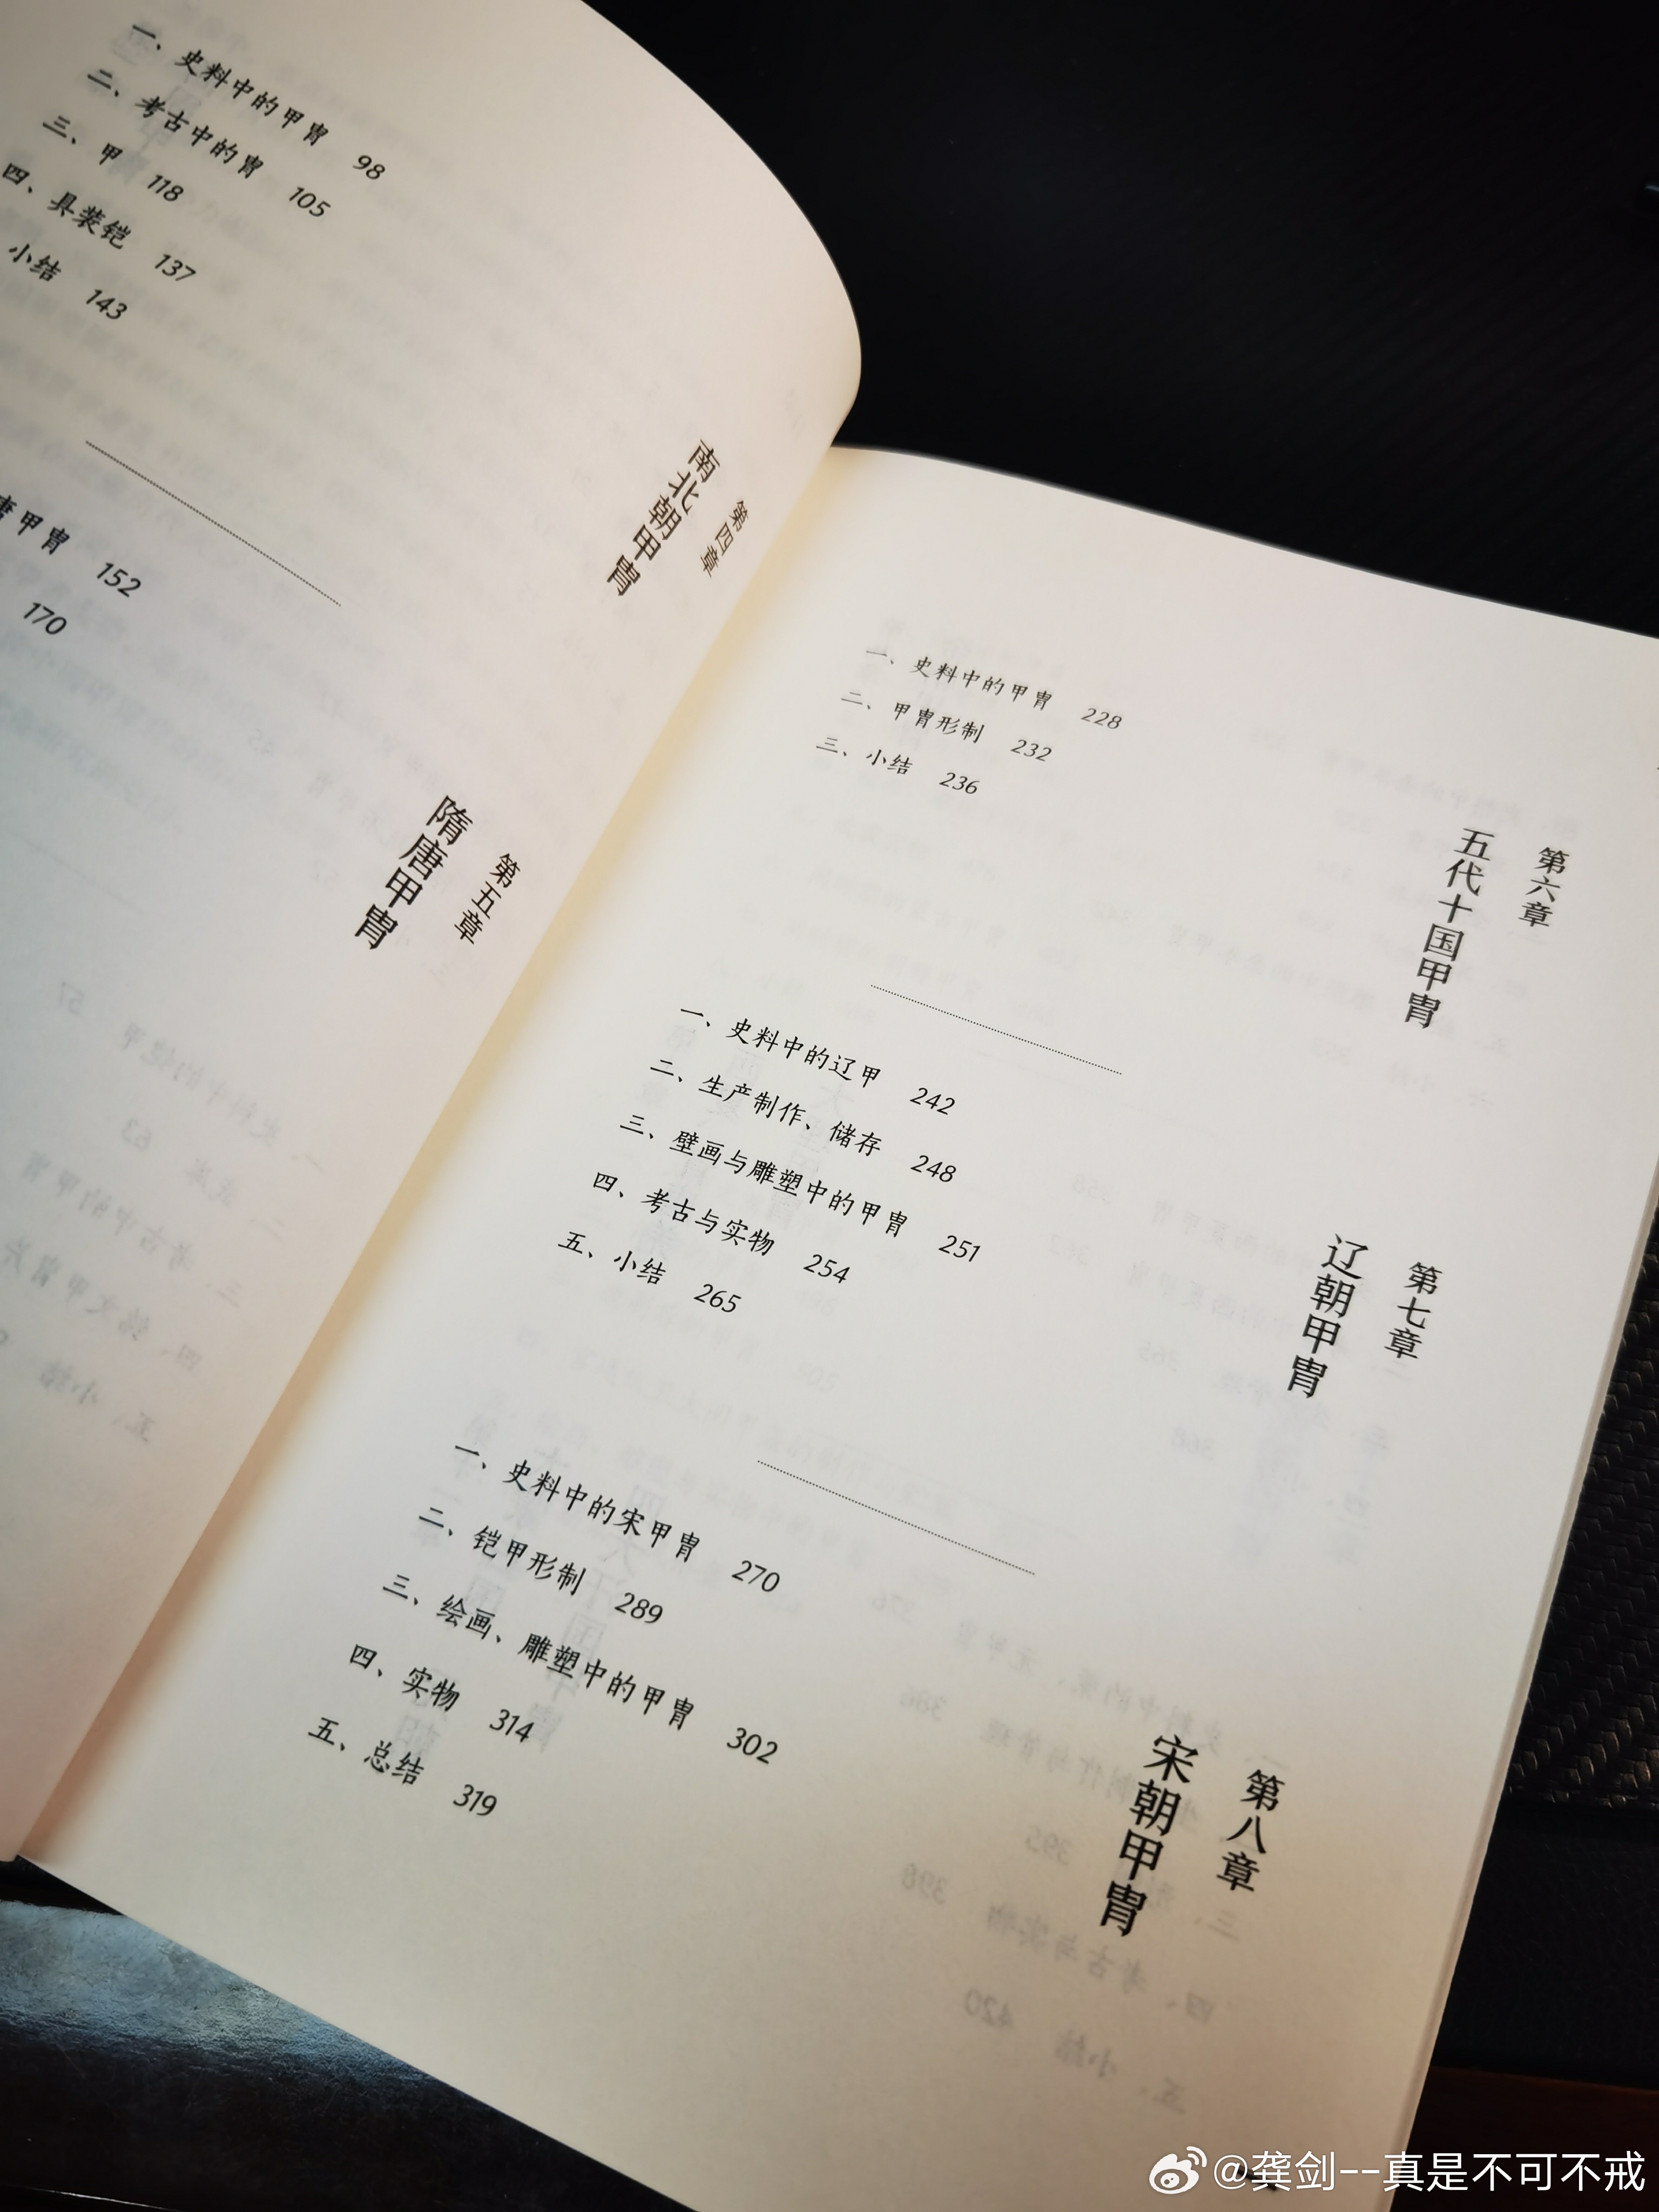 第四章
南北朝甲胄
一、史料中的甲胄 98
二、考古中的胄 105
三、甲 118
四、具装铠 137
小结 143
第五章
隋唐甲胄
唐甲胄 152
170
第六章
五代十国甲胄
一、史料中的甲胄 228
二、甲胄形制 232
三、小结 236
第七章
辽朝甲胄
一、史料中的辽甲 242
二、生产制作、储存 248
三、壁画与雕塑中的甲胄 251
四、考古与实物 254
五、小结 265
第八章
宋朝甲胄
一、史料中的宋甲胄 270
二、铠甲形制 289
三、绘画、雕塑中的甲胄 302
四、实物 314
五、总结 319
@龚剑--真是不可不戒